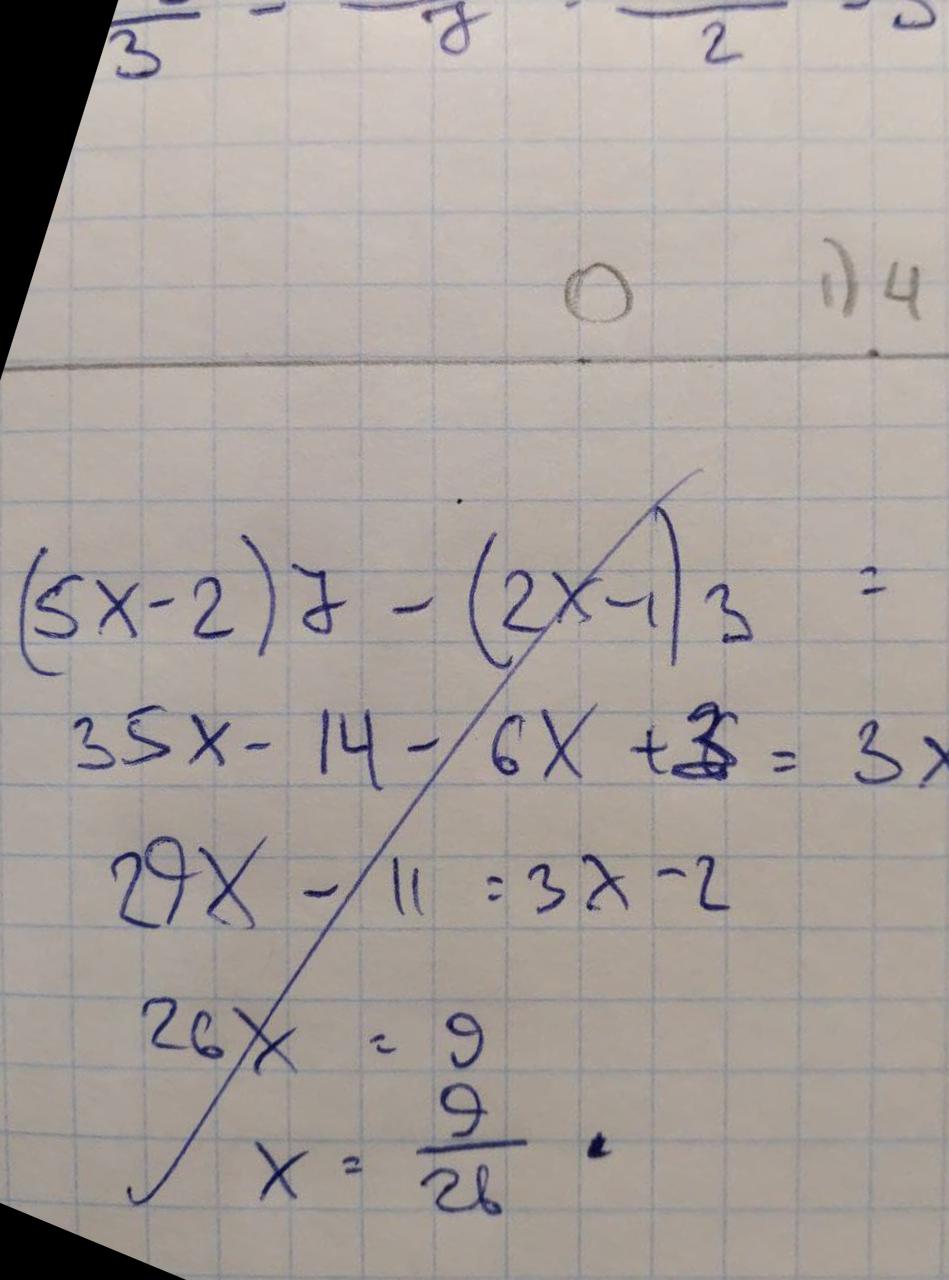 3 - 7 . 2 - 5
0 1) 4
(5x-2)7 - (2x-1)3 =
35x - 14 - 6x + 3 = 3x
29x - 11 = 3x - 2
26x = 9
x = 9/26 .